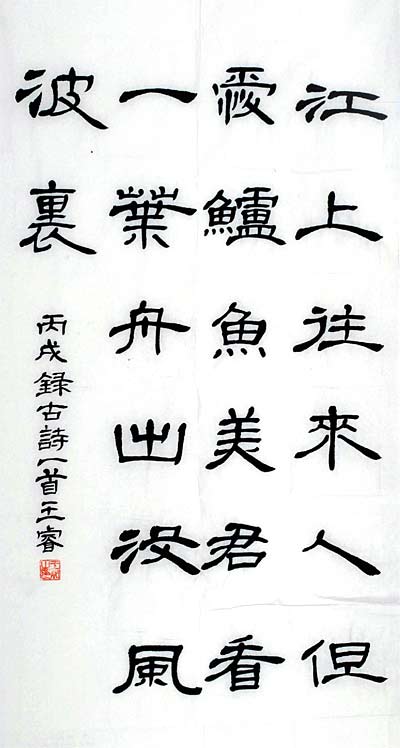 江上往來人但
愛鱸魚美君看
一葉舟出沒風
波裏
丙戌録古詩一首王睿